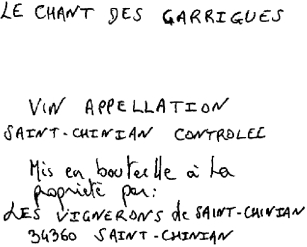 LE CHANT DES GARRIGUES
VIN APPELLATION
SAINT-CHINIAN CONTROLEE
Mis en bouteille à la
propriété par:
LES VIGNERONS de SAINT-CHINIAN
34360 SAINT-CHINIAN